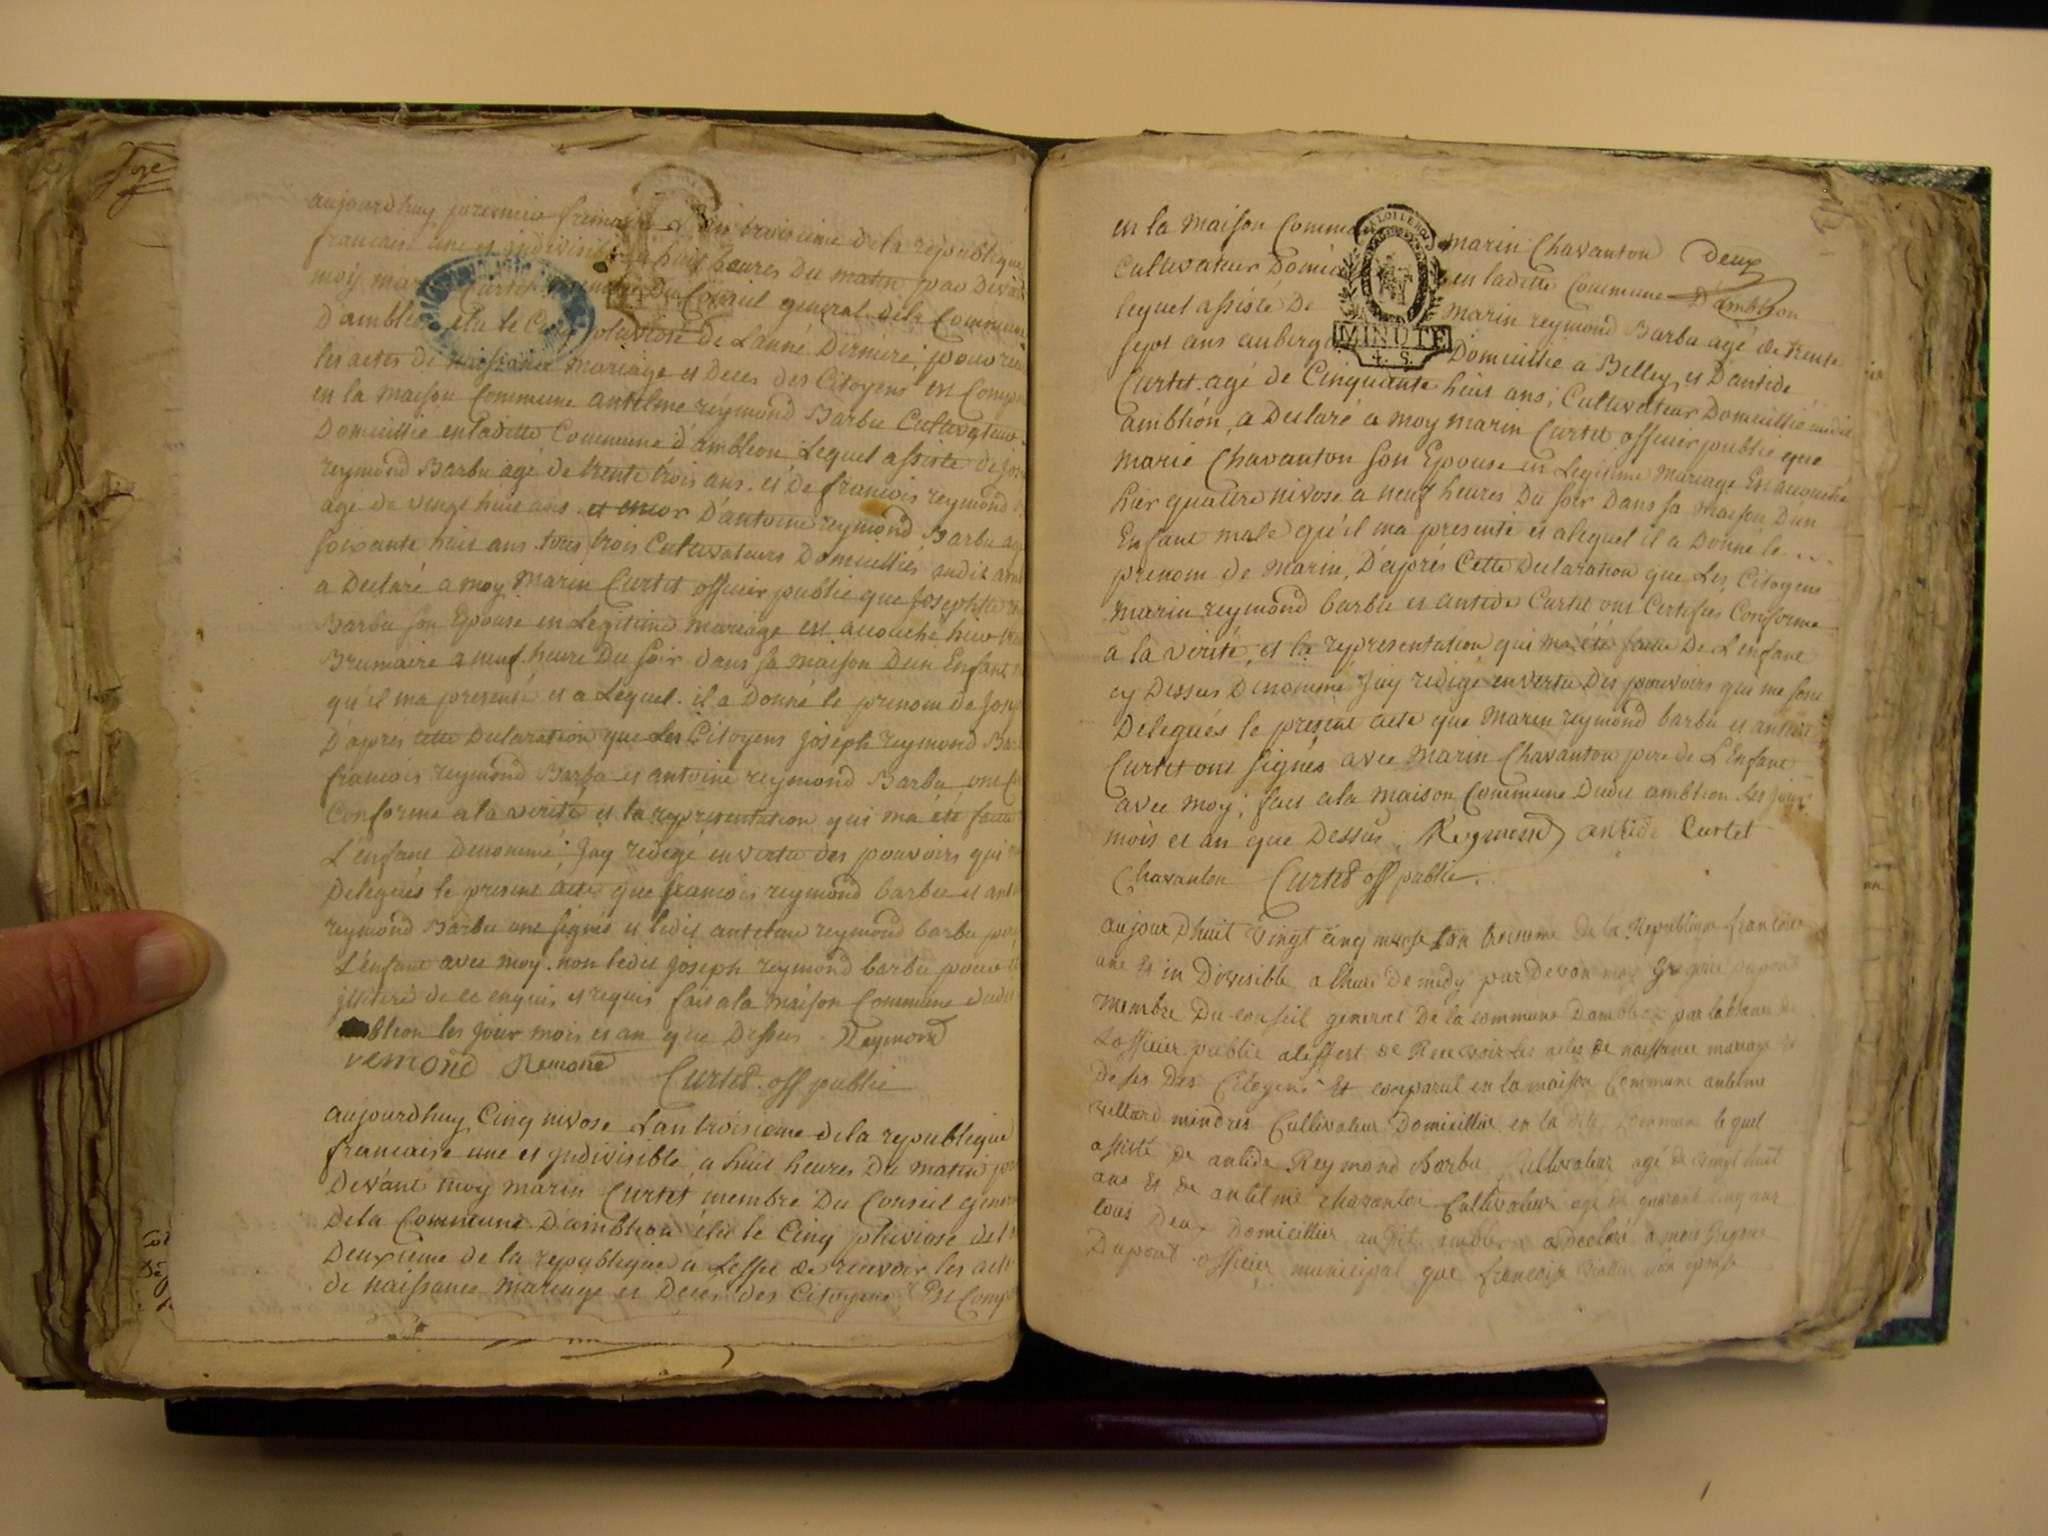 aujourdhuy premier frimaire L'an troisieme dela republique
francaise une et indivisible a huit heures Du matin par Devant
moy marin Curtet membre Du Conseil general dela Commune
D'ambleon elu le Cinq pluviose de L'anné Derniere, pour
les actes de naissance mariage et Deces des Citoyens est
en la maison Commune antelme reymond Barbu Cultivateur
Domicillié en laditte Commune d'ambleon Lequel assisté de
reymond Barbu agé de trente trois ans. et de francois reymond
agé de vingt huit ans. et encor D'antoine reymond Barbu
soixante huit ans tous trois Cultivateurs Domicilliés audit
a Declaré a moy Marin Curtet officier public que Josephtte
Barbu son Epouse en Legitime mariage est acouché hier
Brumaire a neuf heure Du soir dans sa maison D'un Enfant
qu'il ma presenté et a Lequel il a Donné le prenom de
D'aprés cette Declaration que Les Citoyens Joseph reymond
francois reymond Barbu et antoine reymond Barbu ont
Conforme a la verité et la representation qui ma été faitte
L'enfant Denommé Jay redigé en vertu des pouvoirs qui
Delegués le present acte que francois reymond barbu et
reymond Barbu ont signés et ledit antelme reymond barbu
L'enfant avec moy. non ledit Joseph reymond barbu pour
illiteré de ce enquis et requis fait a la maison Commune dudit
bleon les jour mois et an que Dessus Reymond
remond Remond Curtet off public
aujourdhuy Cinq nivose Lan troisieme dela republique
francaise une et indivisible a huit heures Du matin
Devant moy marin Curtet membre Du Conseil
Dela Commune D'ambleon élu le Cinq pluviose
Deuxieme de la republique a Leffet de recevoir les
de naissance mariage et Deces des Citoyens Est
en la Maison marin Chavanton Deux
Cultivateur en laditte Commune D'ambleon
lequel assisté De marin reymond Barbu agé de trente
sept ans Domicillié a Belley et D'antide
MINUTE
Curtet agé de Cinquante huit ans, Cultivateur Domicillié
ambléon, a Declaré a moy marin Curtet officier public que
Marie Chavanton son Epouse en Legitime Mariage Est acouché
hier quattre nivose a neuf heures Du soir Dans sa Maison D'un
Enfant male qu'il ma presenté et alequel il a Donné le
prenom de Marin, D'aprés Cette Declaration que Les Citoyens
marin reymond barbu et antide Curtet ont Certifiés Conforme
a la verité, et la representation qui ma été faitte De L'enfant
cy Dessus Denommé Jay redigé en vertu Des pouvoirs qui me sont
Delegués le present acte que Marin reymond barbu et antide
Curtet ont signés avec Marin Chavanton pere de L'Enfant
avec moy; fait a la maison Commune Dudit ambleon les jour
mois et an que Dessus; Reymond antide Curtet
Chavanton Curtet off public.
aujour Dhuit vingt cinq nivose Lan troisieme de la Republique francoise
une Et in Divisible a lheure De midy par Devan moy Gregoire dupont
membre Du conseil general De la commune Dambleon par labsence
Lofficier public aleffest de Recevoir les actes de naissance mariage
De ses Des Citoyens Et comparut en la maison Commune antelme
Cultivateur Domicillié en la dite commune le quel
assisté de antide Reymond Barbu Cultivateur agé de vingt huit
ans Et de antelme chavanton Cultivateur agé de quarante cinq ans
tous Deux Domicillier au Dit ambleon a declaré a moi Gregoire
Dupont officier municipal que francoise son epouse